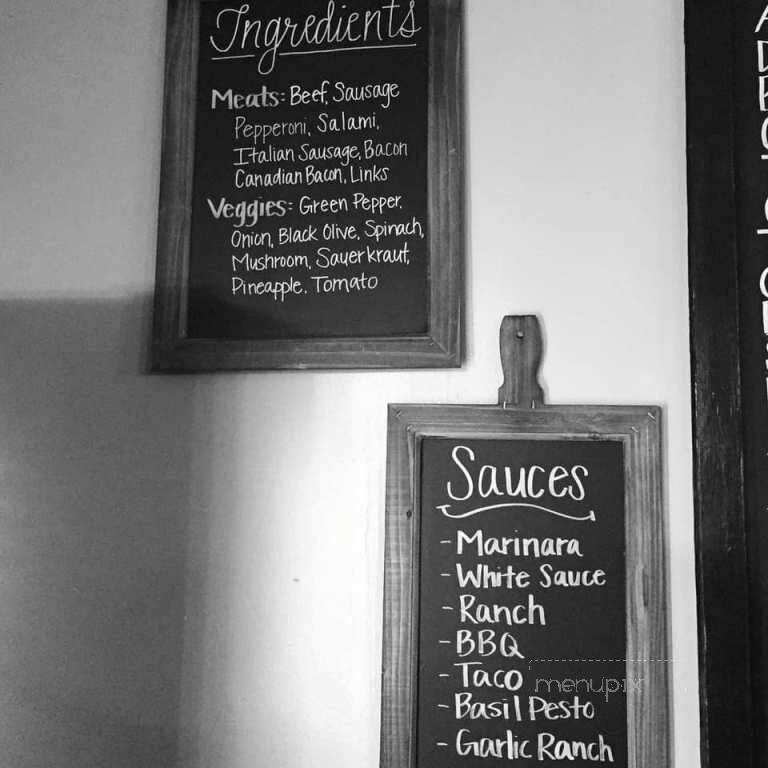 Ingredients
Meats: Beef, Sausage
Pepperoni, Salami,
Italian Sausage, Bacon
Canadian Bacon, Links
Veggies: Green Pepper,
Onion, Black Olive, Spinach,
Mushroom, Sauerkraut,
Pineapple, Tomato
Sauces
- Marinara
- White Sauce
- Ranch
- BBQ
- Taco
- Basil Pesto
- Garlic Ranch
menupix